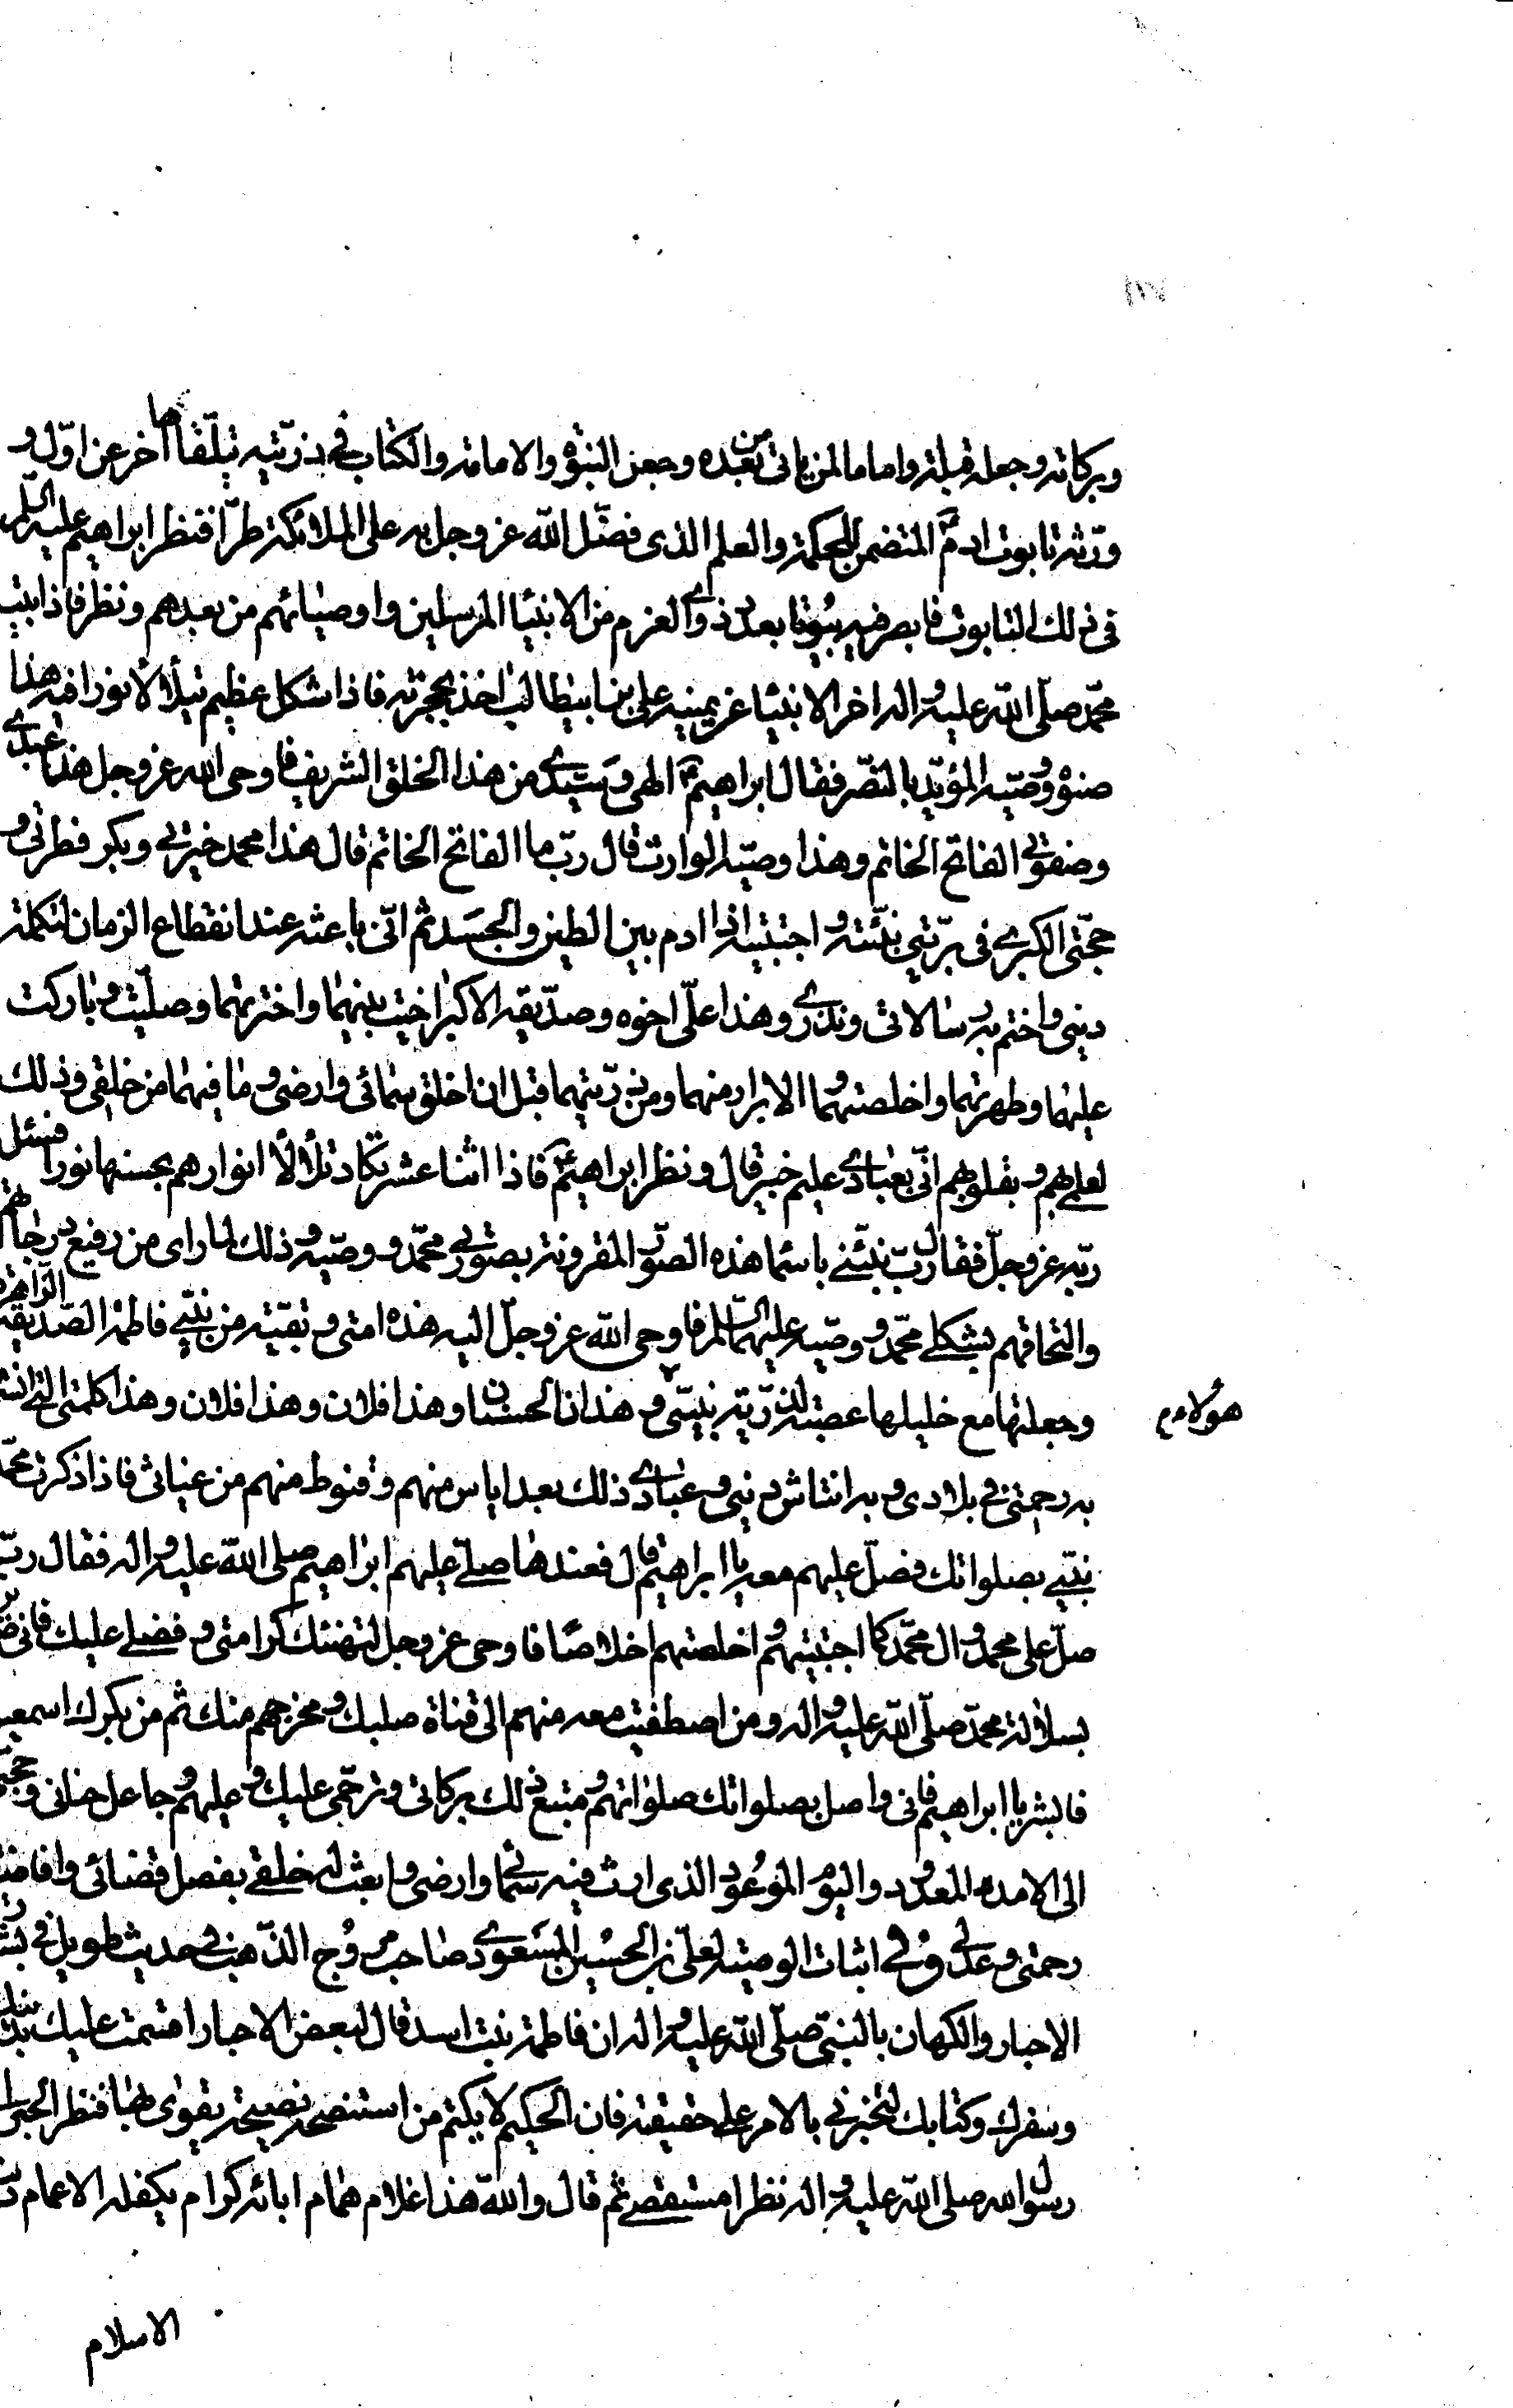 وبركاته وجعله قبلة واماما لمن ياتى من بعده وجعل النبوة والامامة والكتاب فى ذريته يتلقاها آخر عن اول و
ورثه تابوت ادم المتضمن للحكمة والعلم الذى فضل الله عز وجل به على الملائكة طرّا فنظر ابراهيم عليه السلم
فى ذلك التابوت فابصر فيه بيوتا بعدد ذوى العزم من الانبيا المرسلين واوصيائهم من بعدهم ونظر فاذا بيت
محمد صلى الله عليه واله اخر الانبيا عن يمينه على بن ابيطالب اخذ بحجزته فاذا شكل عظيم يتلألأ نورا فيه هذا
صنوه ووصيه المؤيد بالنصر فقال ابراهيم الهى وسيدى من هذا الخلق الشريف فاوحى الله عز وجل هذا عبدى
وصفوتى الفاتح الخاتم وهذا وصيه الوارث قال رب ما الفاتح الخاتم قال هذا محمد خيرتى وبكر فطرتى و
حجتى الكبرى فى بريتى نبئته واجتبيته اذا ادم بين الطين والجسد ثم انى باعثه عند انقطاع الزمان لتكلمة
دينى واختم به رسالاتى ونذرى وهذا على اخوه وصديقه الاكبر اخيت بينهما واخترتهما وصليت وباركت
عليهما وطهرتهما واخلصتهما والابرار منهما ومن ذريتهما قبل ان اخلق سمائى وارضى وما فيهما من خلقى وذلك
لعلمى بهم وبقلوبهم انى بعبادى عليم خبير قال ونظر ابراهيم فاذا اثنا عشر تكاد تلألأ انوارهم بحسنها نورا فسئل
ربه عز وجل فقال رب نبئنى باسما هذه الصور المقرونة بصورتى محمد ووصيه وذلك لما راى من رفيع درجاتهم
والتحاقهم بشكلى محمد ووصيه عليهما السلم فاوحى الله عز وجل اليه هذه امتى وبقية من نبيى فاطمة الصديقة الزاهرة
وجعلتها مع خليلها عصبة لذرية نبيى وهذان الحسنان وهذا فلان وهذا فلان وهذا كلمتى التى انشر
هؤلاء م
به رحمتى فى بلادى وبه انتاش دينى وعبادى ذلك بعد اياس منهم وقنوط منهم من غياثى فاذا ذكرت محمد
نبيى بصلواتك فصل عليهم معه يا ابراهيم قال فعندها صلى عليهم ابراهيم صلى الله عليه واله فقال رب
صل على محمد وال محمد كما اجتبيتهم واخلصتهم اخلاصا فاوحى عز وجل لتهنئك كرامتى وفضلى عليك فانى
بسلالة محمد صلى الله عليه واله ومن اصطفيت معه منهم الى قناة صلبك ومخرجهم منك ثم من بكرك اسمعيل
فابشر يا ابراهيم فانى واصل بصلواتك صلواتهم ومتبع ذلك بركاتى وترحمى عليك وعليهم وجاعل حنانى وحجتى
الى الامد المعدود واليوم الموعود الذى ارث فيه سمائى وارضى وابعث له خلقى بفصل قضائى وافاضة
رحمتى وعدلى وفى اثبات الوصية لعلى بن الحسين المسعودى صاحب مروج الذهب فى حديث طويل فى
الاحبار والكهان بالنبى صلى الله عليه واله ان فاطمة بنت اسد قال لبعض الاحبار اقسمت عليك
وسفرك وكتابك لتخبرنى بالامر على حقيقته فان الحكيم لا يكتم من استنصحه نصيحة يقوى بها فنظر الحبر الى
رسول الله صلى الله عليه واله نظرا مستقصى ثم قال والله هذا غلام همام ابائه كرام يكفله الاعمام
الاسلام